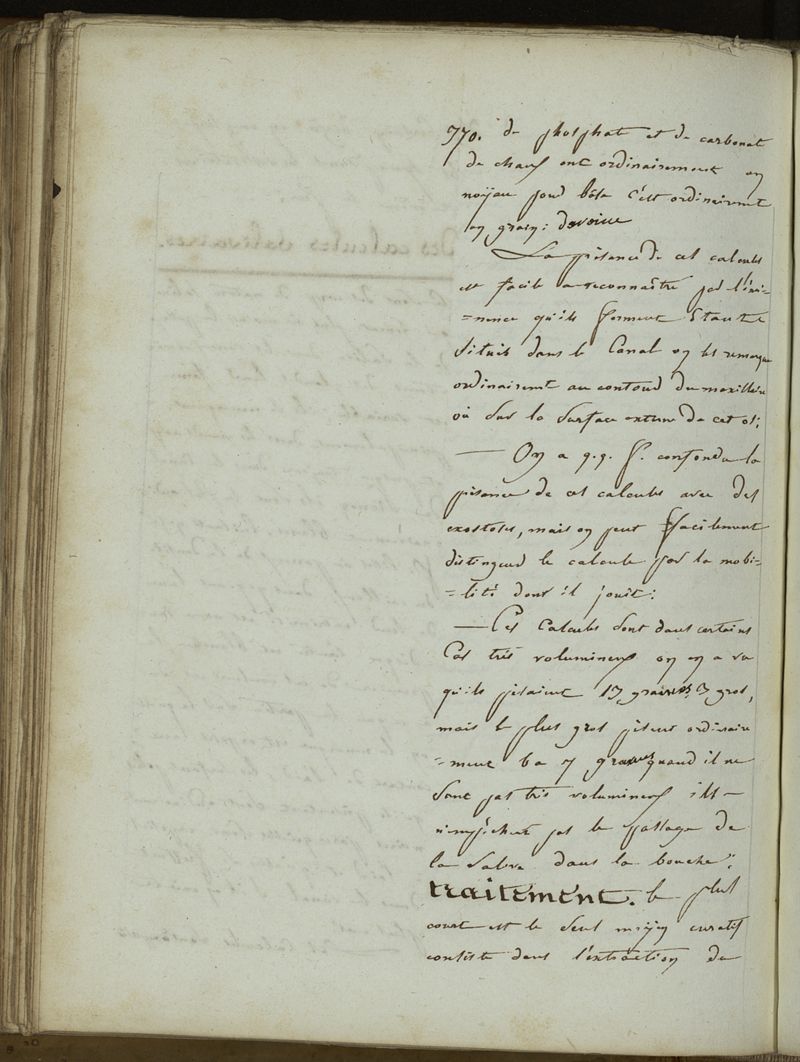 370. de phosphat et de carbonat
de chaux ont ordinairement un
noyau pour base c'est ordinairement
un grain: davoine
La présence de cet calculs
est facile a reconnaître par l'émi-
=nence qu'ils forment Etante
Situés dans le Canal on les remarque
ordinairemt au contour du maxillaire
où Sur la Surface externe de cet os;
— On a q.q. f. confondu la
présence de cet calculs avec des
exostoses, mais on peut facilement
distingué le calcule par la mobi-
=lité dont il jouit:
— Ces Calculs Sont dans certains
Cas très volumineux on en a vu
qu'ils pésaient 13 3 gros,
mais le plus gros pèsent ordinaire
=ment 6 a 7 quand il ne
Sont pas très volumineux ils
n'empêchent pas le passage de
la Salive dans la bouche:
traitement. le plus
court est le Seul moyen curatif
consiste dans l'extraction du